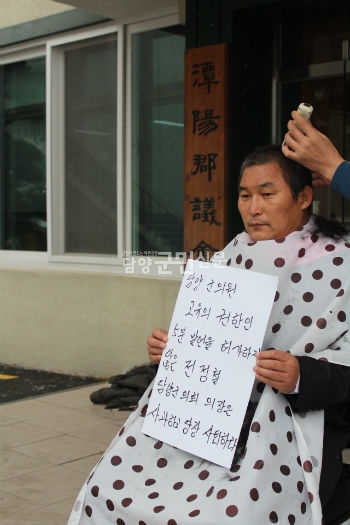 潭陽郡議會
담양군민신문
담양 군의원
고유의 권한인
5분 발언을 허가하지
않은 전정철
담양군의회 의장은
사과하고 당장 사퇴하라